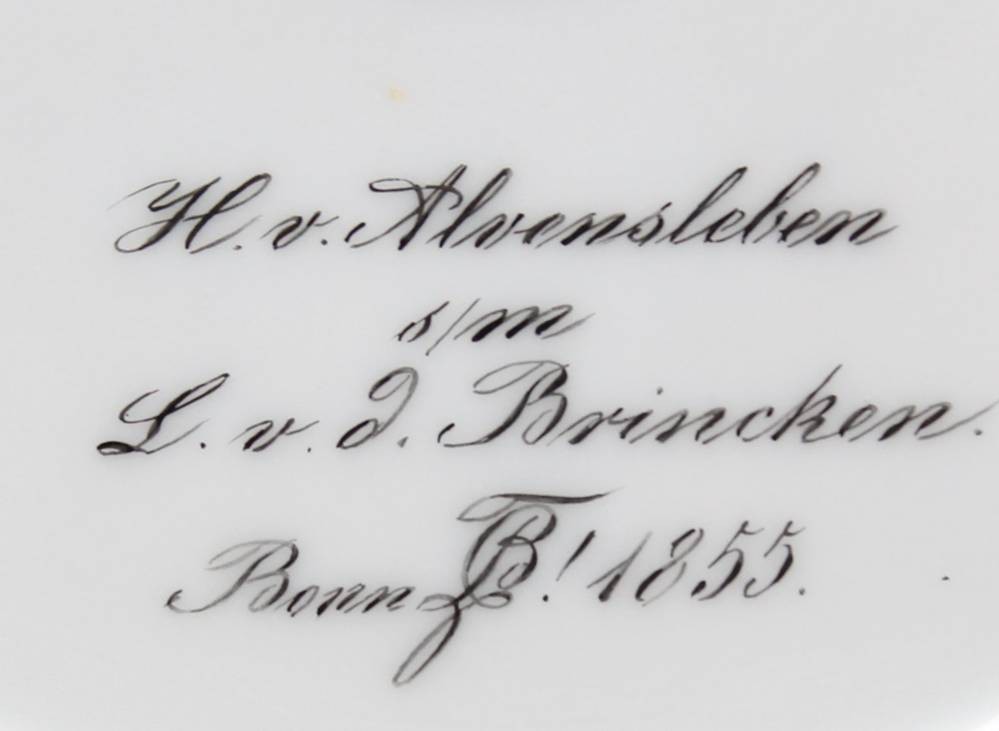 H. v. Alvensleben
s/m
L. v. d. Brincken.
Bonn ! 1855.